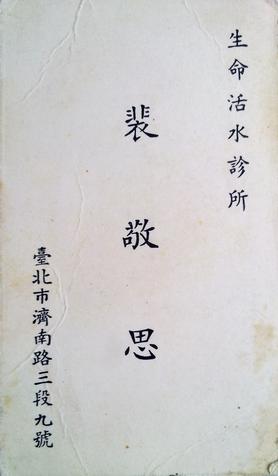 生命活水診所
裴敬思
臺北市濟南路三段九號